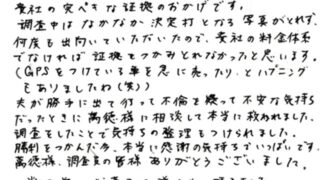 貴社の完ぺきな証拠のおかげです。
調査中はなかなか決定打となる写真がとれず、
何度も出向いていただいたので、貴社の料金体系
でなければ証拠をつかみとれなかったと思います。
(GPSをつけている車を急に売ったり、とハプニング
もありましたね(笑))
夫が勝手に出て行って不倫を疑って不安な気持ち
だったときに萬徳様に相談して本当に救われました。
調査をしたことで気持ちの整理もつけられました。
勝利をつかんだ今、本当に感謝の気持ちでいっぱいです。
萬徳様、調査員の皆様 ありがとうございました。